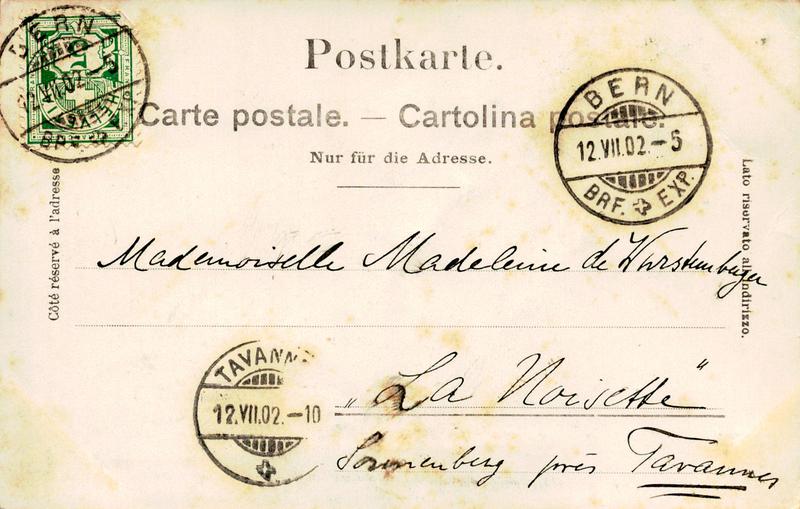 Postkarte.
Carte postale. — Cartolina postale.
Nur für die Adresse.
BERN
12.VII.02.–5
BRF. EXP.
BERN
12.VII.02.–5
Côté réservé à l'adresse
Lato riservato all'indirizzo.
Mademoiselle Madeleine de Wurstemberger
TAVANN
12.VII.02.–10
„La Noisette"
Sonnenberg près Tavannes